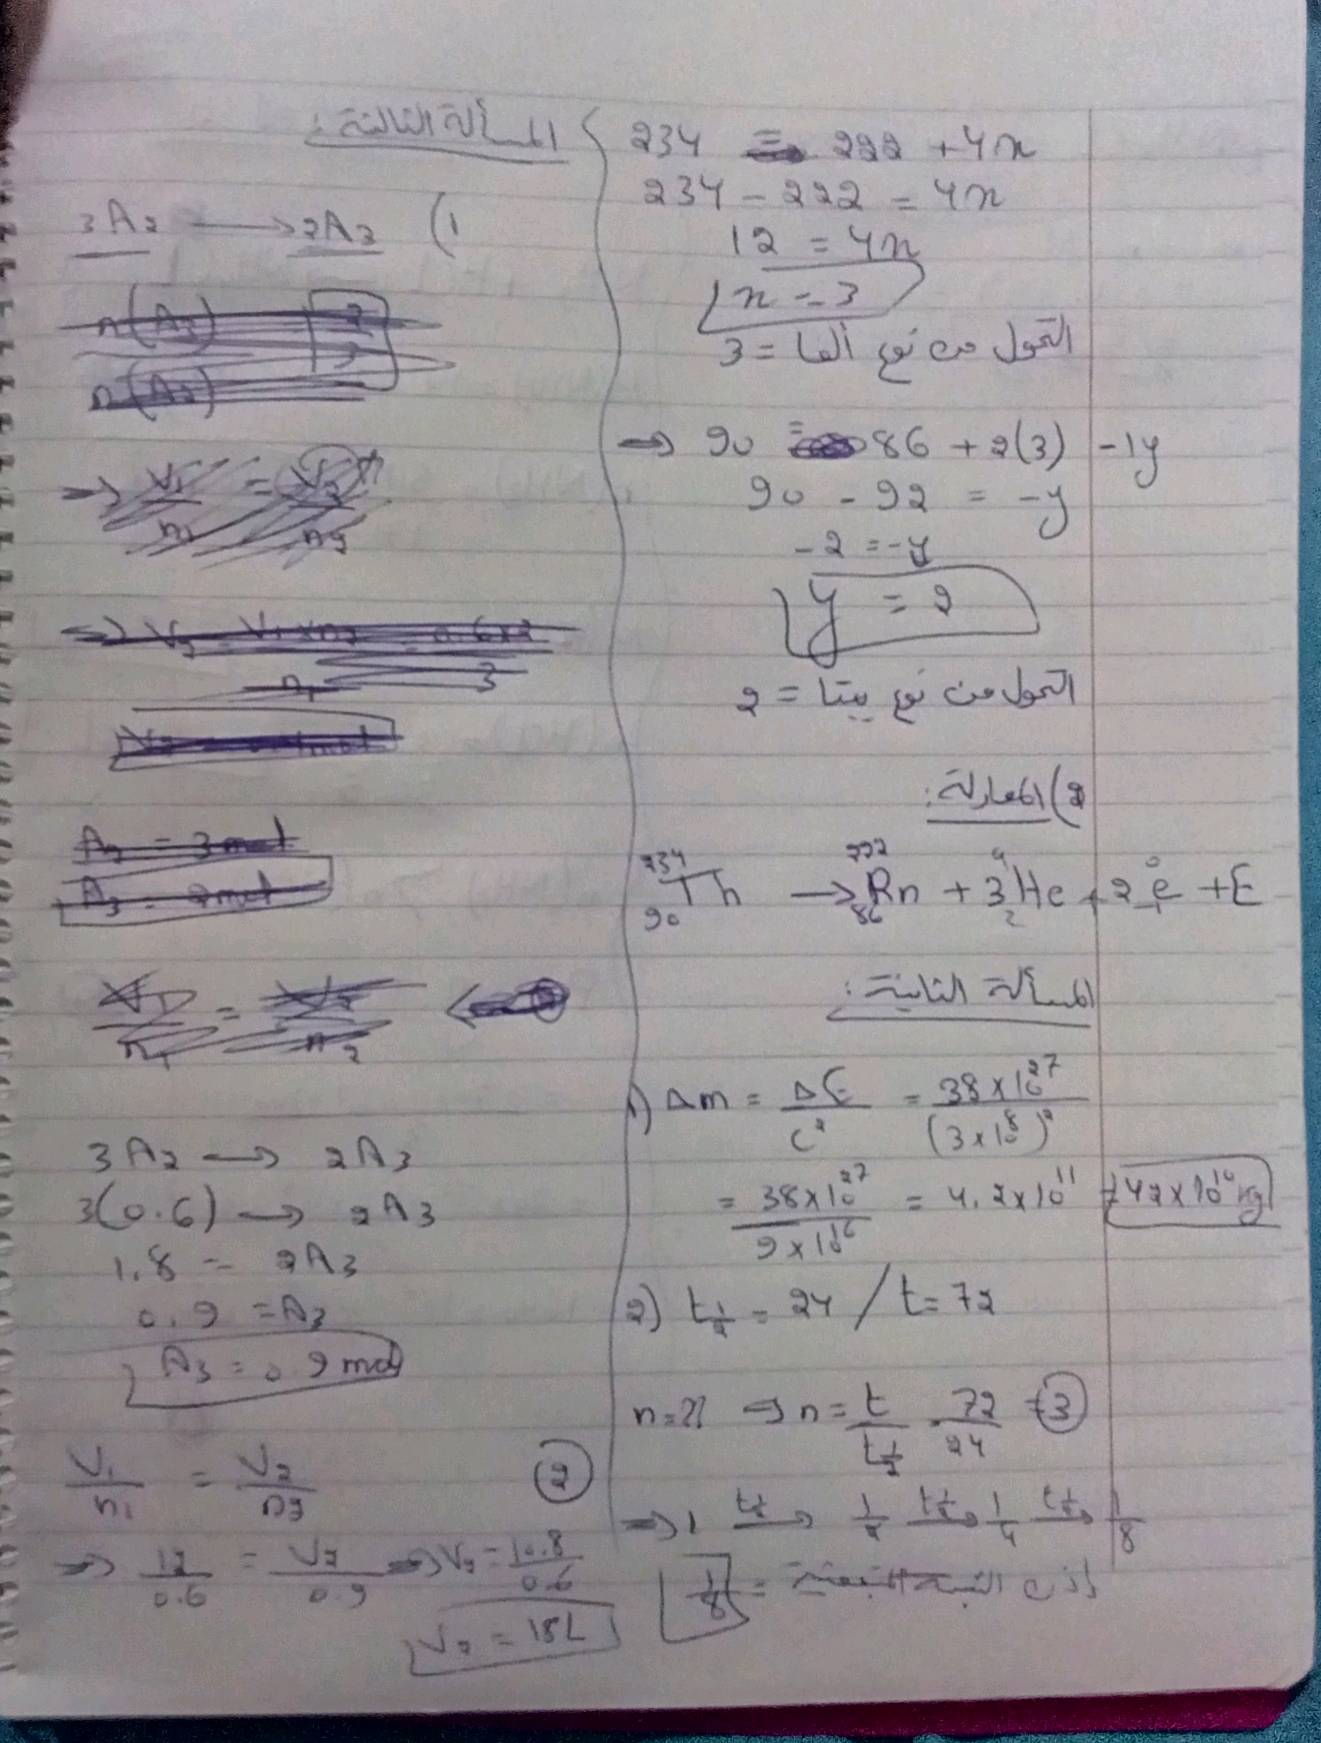 234 = 222 + 4x
234 - 222 = 4x
12 = 4x
x = 3
التحول من نوع ألفا = 3
=> 90 = 86 + 2(3) - 1y
90 - 92 = -y
-2 = -y
y = 2
التحول من نوع بيتا = 2
2) المعادلة:
²³⁴₉₀Th → ²²²₈₆Rn + 3⁴₂He + 2⁰₋₁e + E
المسألة الثانية:
1) Δm = ΔE/c² = 38×10²⁷/(3×10⁸)²
= 38×10²⁷/9×10¹⁶ = 4.2×10¹¹ = 42×10¹⁰ kg
2) t½ = 24 / t = 72
n = ?? => n = t/t½ = 72/24 = 3
=> 1 —t½→ 1/2 —t½→ 1/4 —t½→ 1/8
إذن النسبة المتبقية = 1/8
المسألة الثالثة:
1) 3A₂ → 2A₃
3A₂ → 2A₃
3(0.6) → 2A₃
1.8 = 2A₃
0.9 = A₃
A₃ = 0.9 mol
2) V₁/n₁ = V₂/n₂
=> 12/0.6 = V₂/0.9 => V₂ = 10.8/0.6
V₂ = 18L